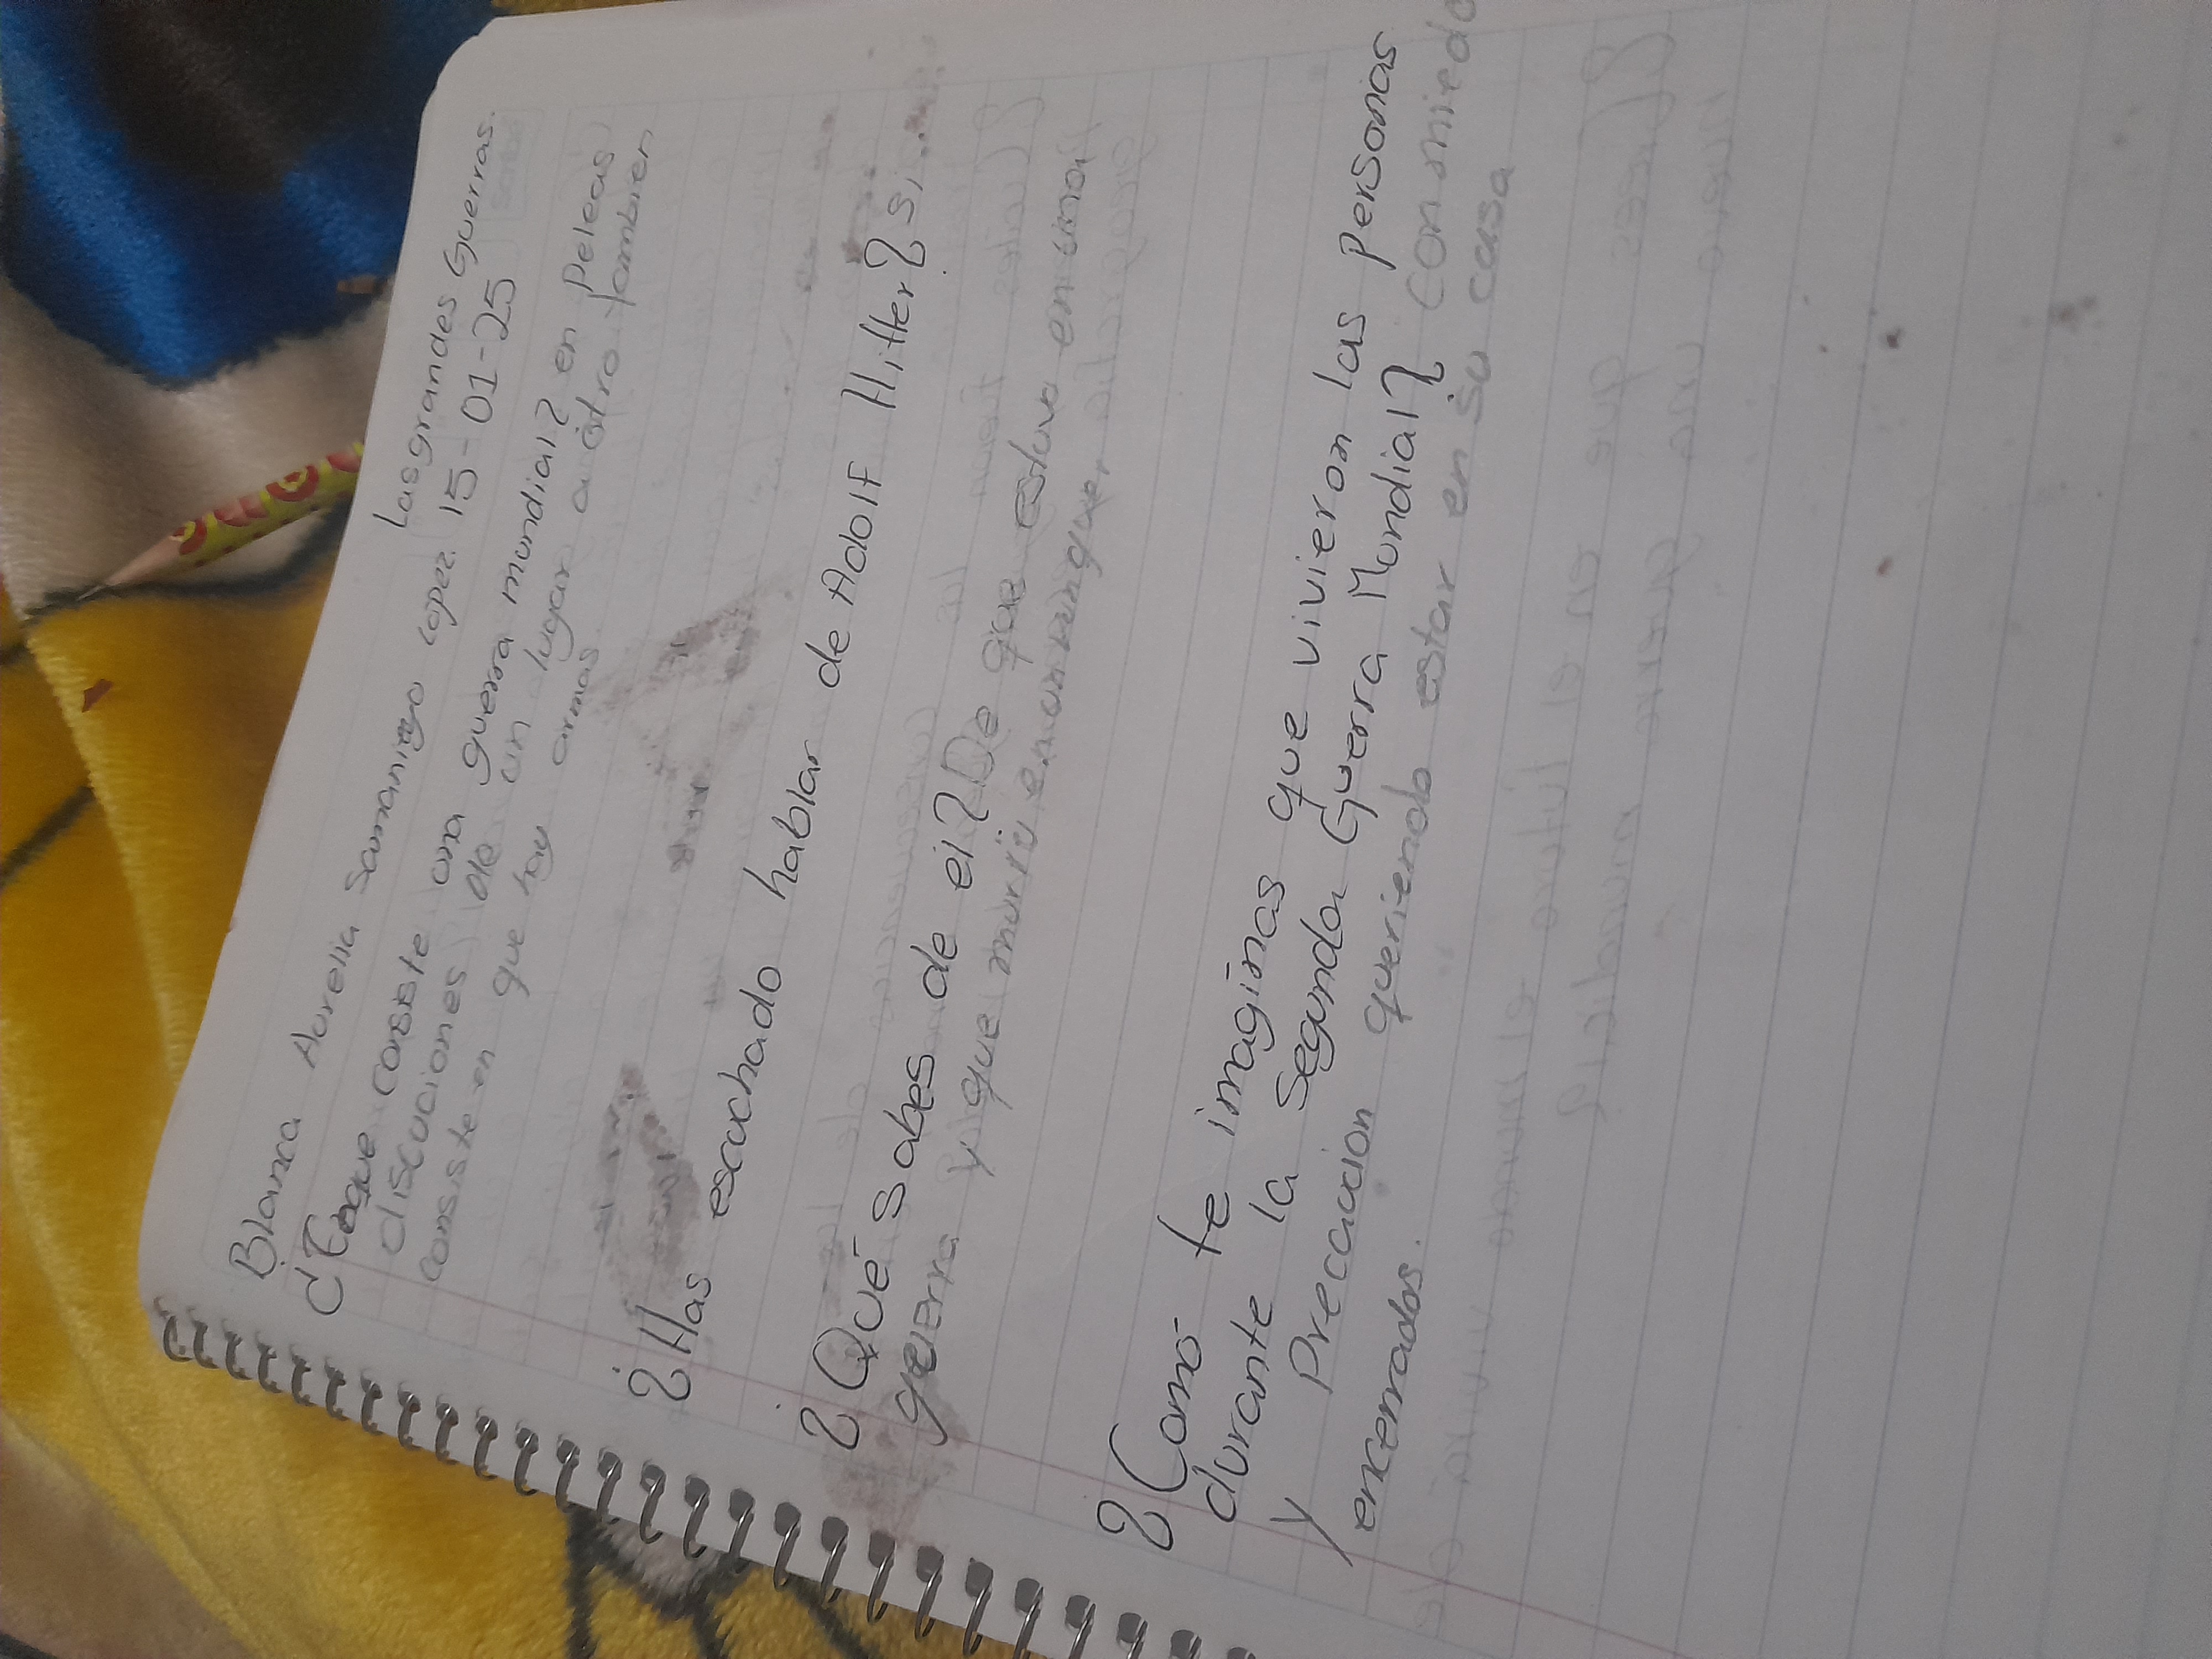 Las grandes Guerras.
Blanca Aurelia Samaniego Lopez 15-01-25
¿En que consiste una guerra mundial? en peleas
discuciones de un lugar a otro tambien
consiste en que hay armas.
¿Has escuchado hablar de Adolf Hitler? si.
¿Qué sabes de el? De que estuvo en una
guerra y que murio en un
¿Comó te imaginas que vivieron las personas
durante la Segunda Guerra Mundial? Con miedo
y Precaucion queriendo estar en su casa
encerrados.